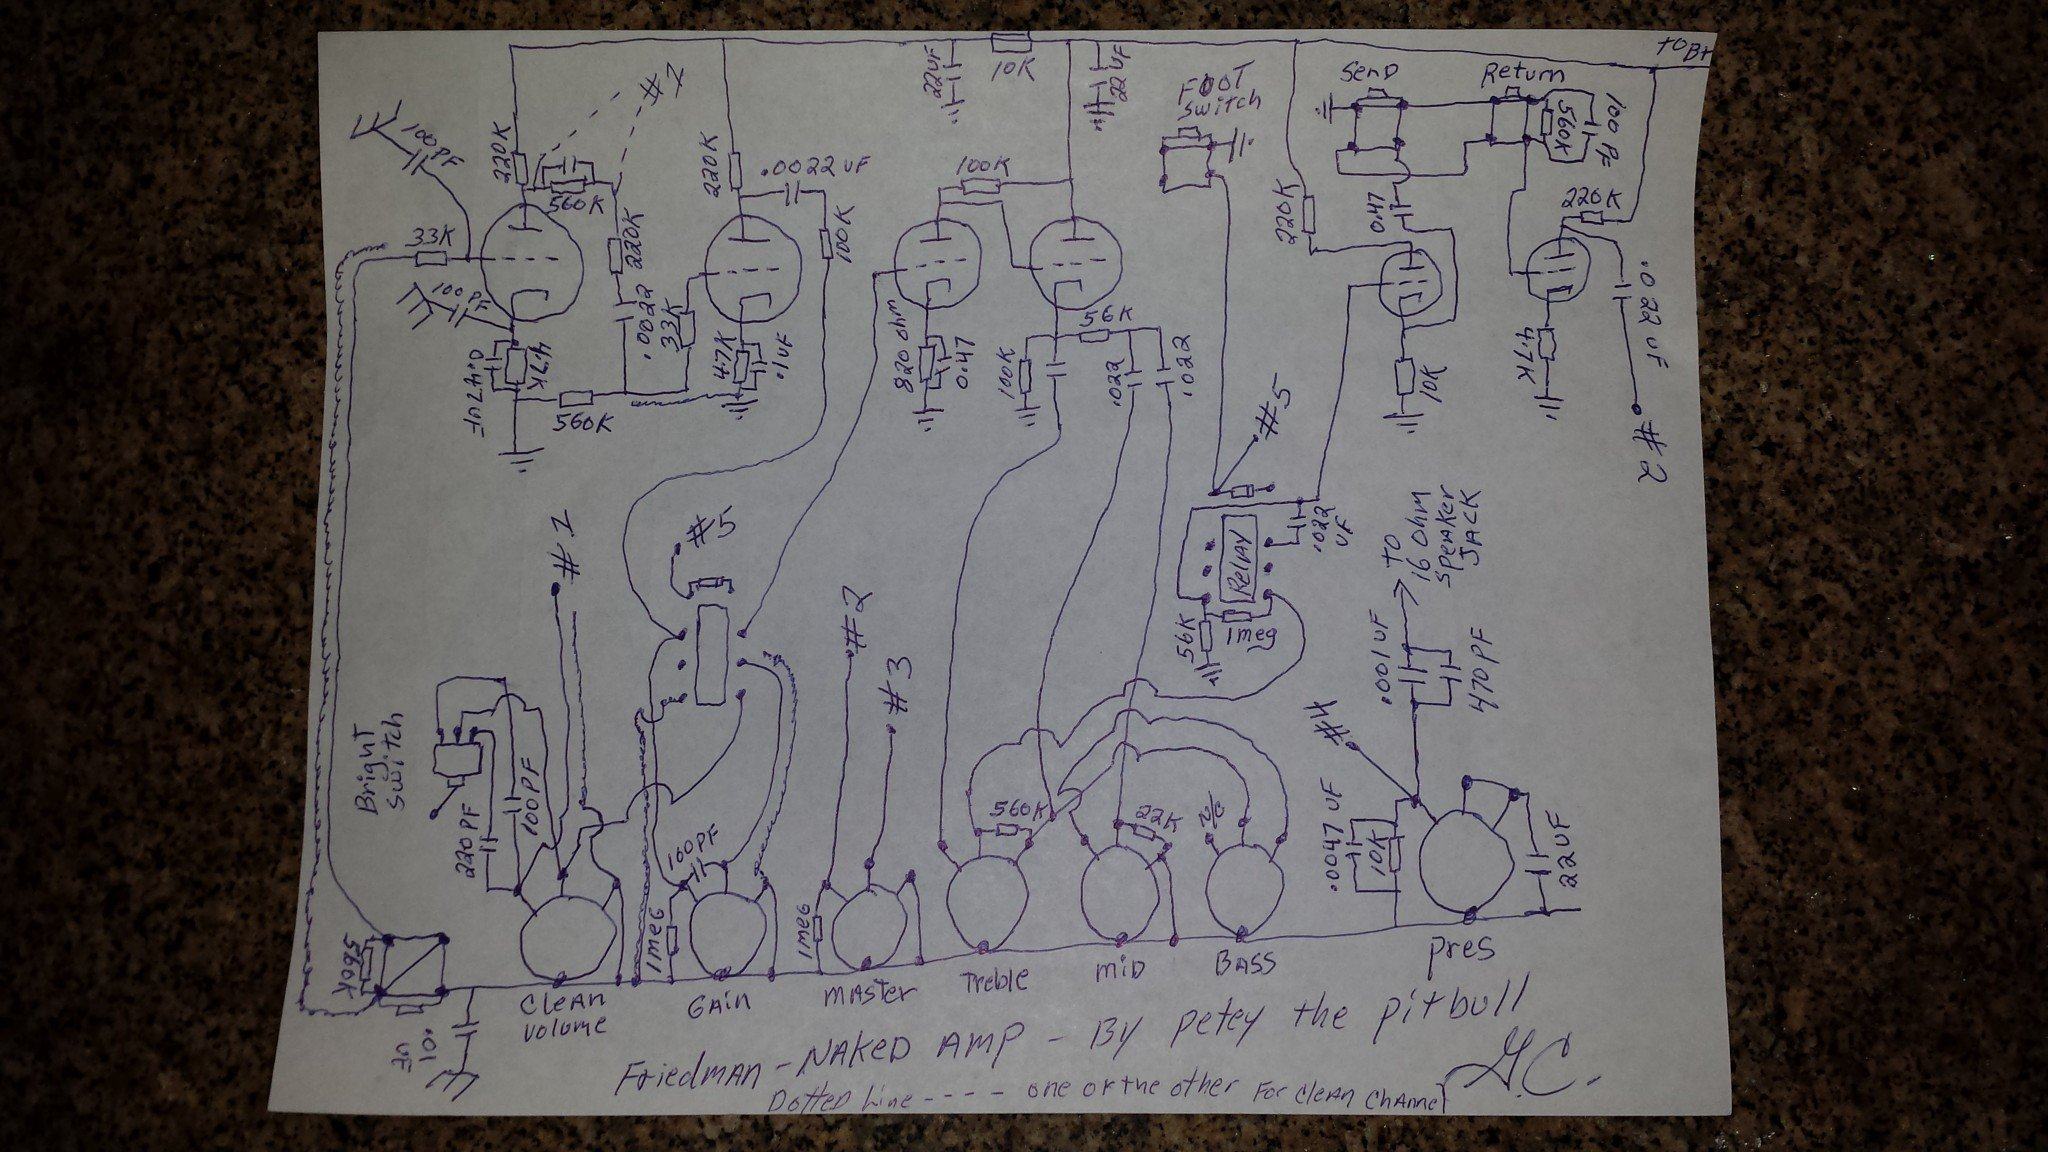 TO B+
22UF
10K
22 UF
FOOT
Switch
SenD
Return
100 PF
560K
#1
100PF
220K
560K
220K
.0022 UF
100K
100K
220K
0.47
220K
33K
220K
100 PF
.0022
33K
0.47UF
47K
560K
4.7K
.1UF
820 ohm
0.47
100K
56K
.022
.022
10K
4.7K
.022 UF
#2
#5
#1
#5
#2
#3
Relay
.022
UF
56K
1meg
TO
16 Ohm
Speaker
JACK
.001UF
470PF
#4
Bright
Switch
220PF
100PF
160PF
560K
22K
.0047 UF
10K
22UF
560K
1MEG
1MEG
.01
UF
CLEAN
VOLUME
GAIN
MASTER
Treble
MID
BASS
Pres
FriedMAN - NAKED AMP - BY petey the pitbull
DOTTED Line - - - - one or the other For Clean Channel
G.C.